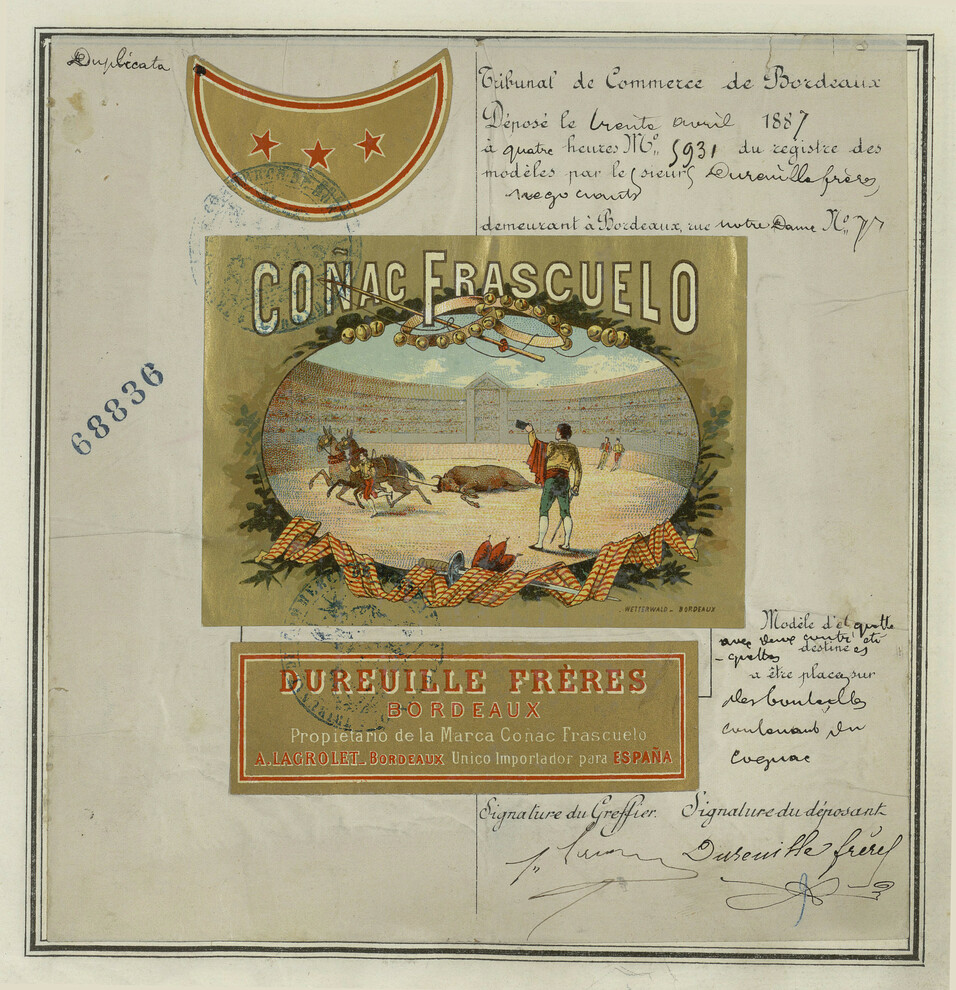 Duplicata
Tribunal de Commerce de Bordeaux
Déposé le trente avril 1887
à quatre heures No. 5931 du registre des
modèles par le sieurs Dureuille frères
negociants
demeurant à Bordeaux, rue notre Dame No. 77
CONAC FRASCUELO
68836
WETTERWALD - BORDEAUX
Modèle d'etiquette
avec deux contre eti
-quettes destinées
à être placé sur
des bouteilles
contenant du
Cognac
DUREUILLE FRÈRES
BORDEAUX
Propietario de la Marca Coñac Frascuelo
A. LAGROLET_BORDEAUX Unico Importador para ESPAÑA
Signature du Greffier. Signature du déposant
Dureuille frères